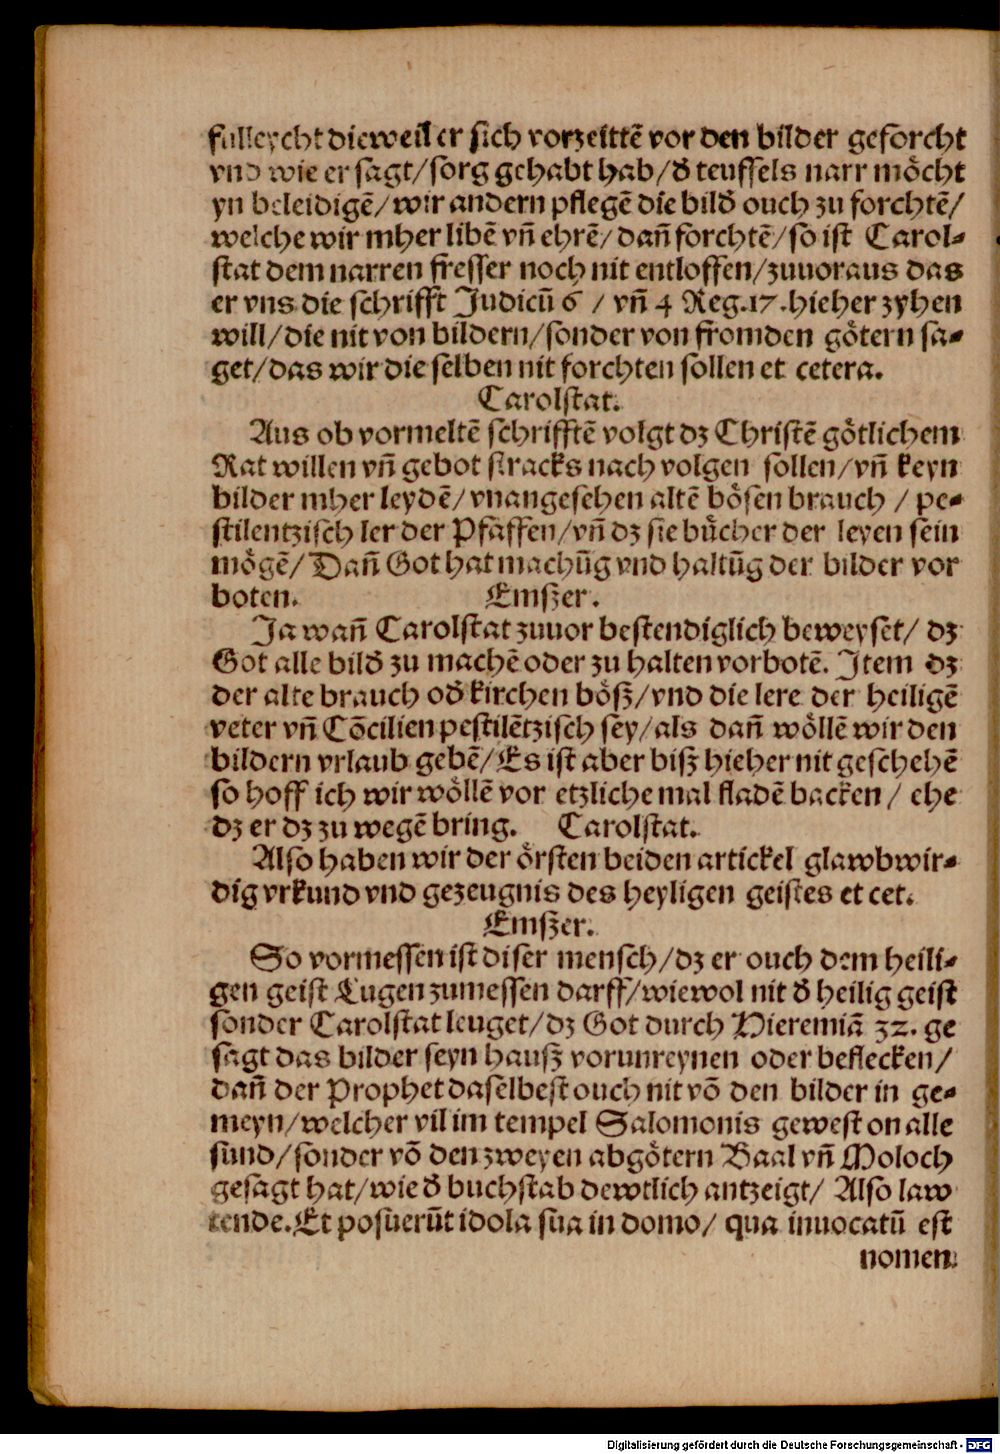 fulleycht dieweil er sich vorzeittē vor den bilder geforcht
vnd wie er sagt/sorg gehabt hab/đ teuffels narr möcht
yn beleidigē/wir andern pflegē die bilđ ouch zu forchtē/
welche wir mher libē vñ ehrē/dañ forchtē/so ist Carol⸗
stat dem narren fresser noch nit entloffen/zuuoraus das
er vns die schrifft Judicū 6 / vñ 4 Reg.17.hieher zyhen
will/die nit von bildern/sonder von fromden götern sa⸗
get/das wir die selben nit forchten sollen et cetera.
Carolstat.
Aus ob vormeltē schrifftē volgt dz Christē götlichem
Rat willen vñ gebot stracks nach volgen sollen/vñ keyn
bilder mher leydē/vnangesehen altē bösen brauch / pe⸗
stilentzisch ler der Pfaffen/vñ dz sie bücher der leyen sein
mögē/Dañ Got hat machūg vnd haltūg der bilder vor
boten. Emßer.
Ja wañ Carolstat zuuor bestendiglich beweyset/ dz
Got alle bilđ zu machē oder zu halten vorbotē. Item dz
der alte brauch ođ kirchen böß/vnd die lere der heiligē
veter vñ Cōcilien pestilētzisch sey/als dañ wöllē wir den
bildern vrlaub gebē/Es ist aber biß hieher nit geschehē
so hoff ich wir wöllē vor etzliche mal fladē backen/ ehe
dz er dz zu wegē bring. Carolstat.
Also haben wir der örsten beiden artickel glawbwir⸗
dig vrkund vnd gezeugnis des heyligen geistes et cet.
Emßer.
So vormessen ist diser mensch/dz er ouch dem heili⸗
gen geist Lugen zumessen darff/wiewol nit đ heilig geist
sonder Carolstat leuget/dz Got durch Hieremiā 32. ge
sagt das bilder seyn hauß vorunreynen oder beflecken/
dañ der Prophet daselbest ouch nit vō den bilder in ge⸗
meyn/welcher vil im tempel Salomonis gewest on alle
sund/sonder vō den zweyen abgötern Baal vñ Moloch
gesagt hat/wie đ buchstab dewtlich antzeigt/ Also law
tende.Et posuerūt idola sua in domo/ qua inuocatū est
nomen
Digitalisierung gefördert durch die Deutsche Forschungsgemeinschaft - DFG